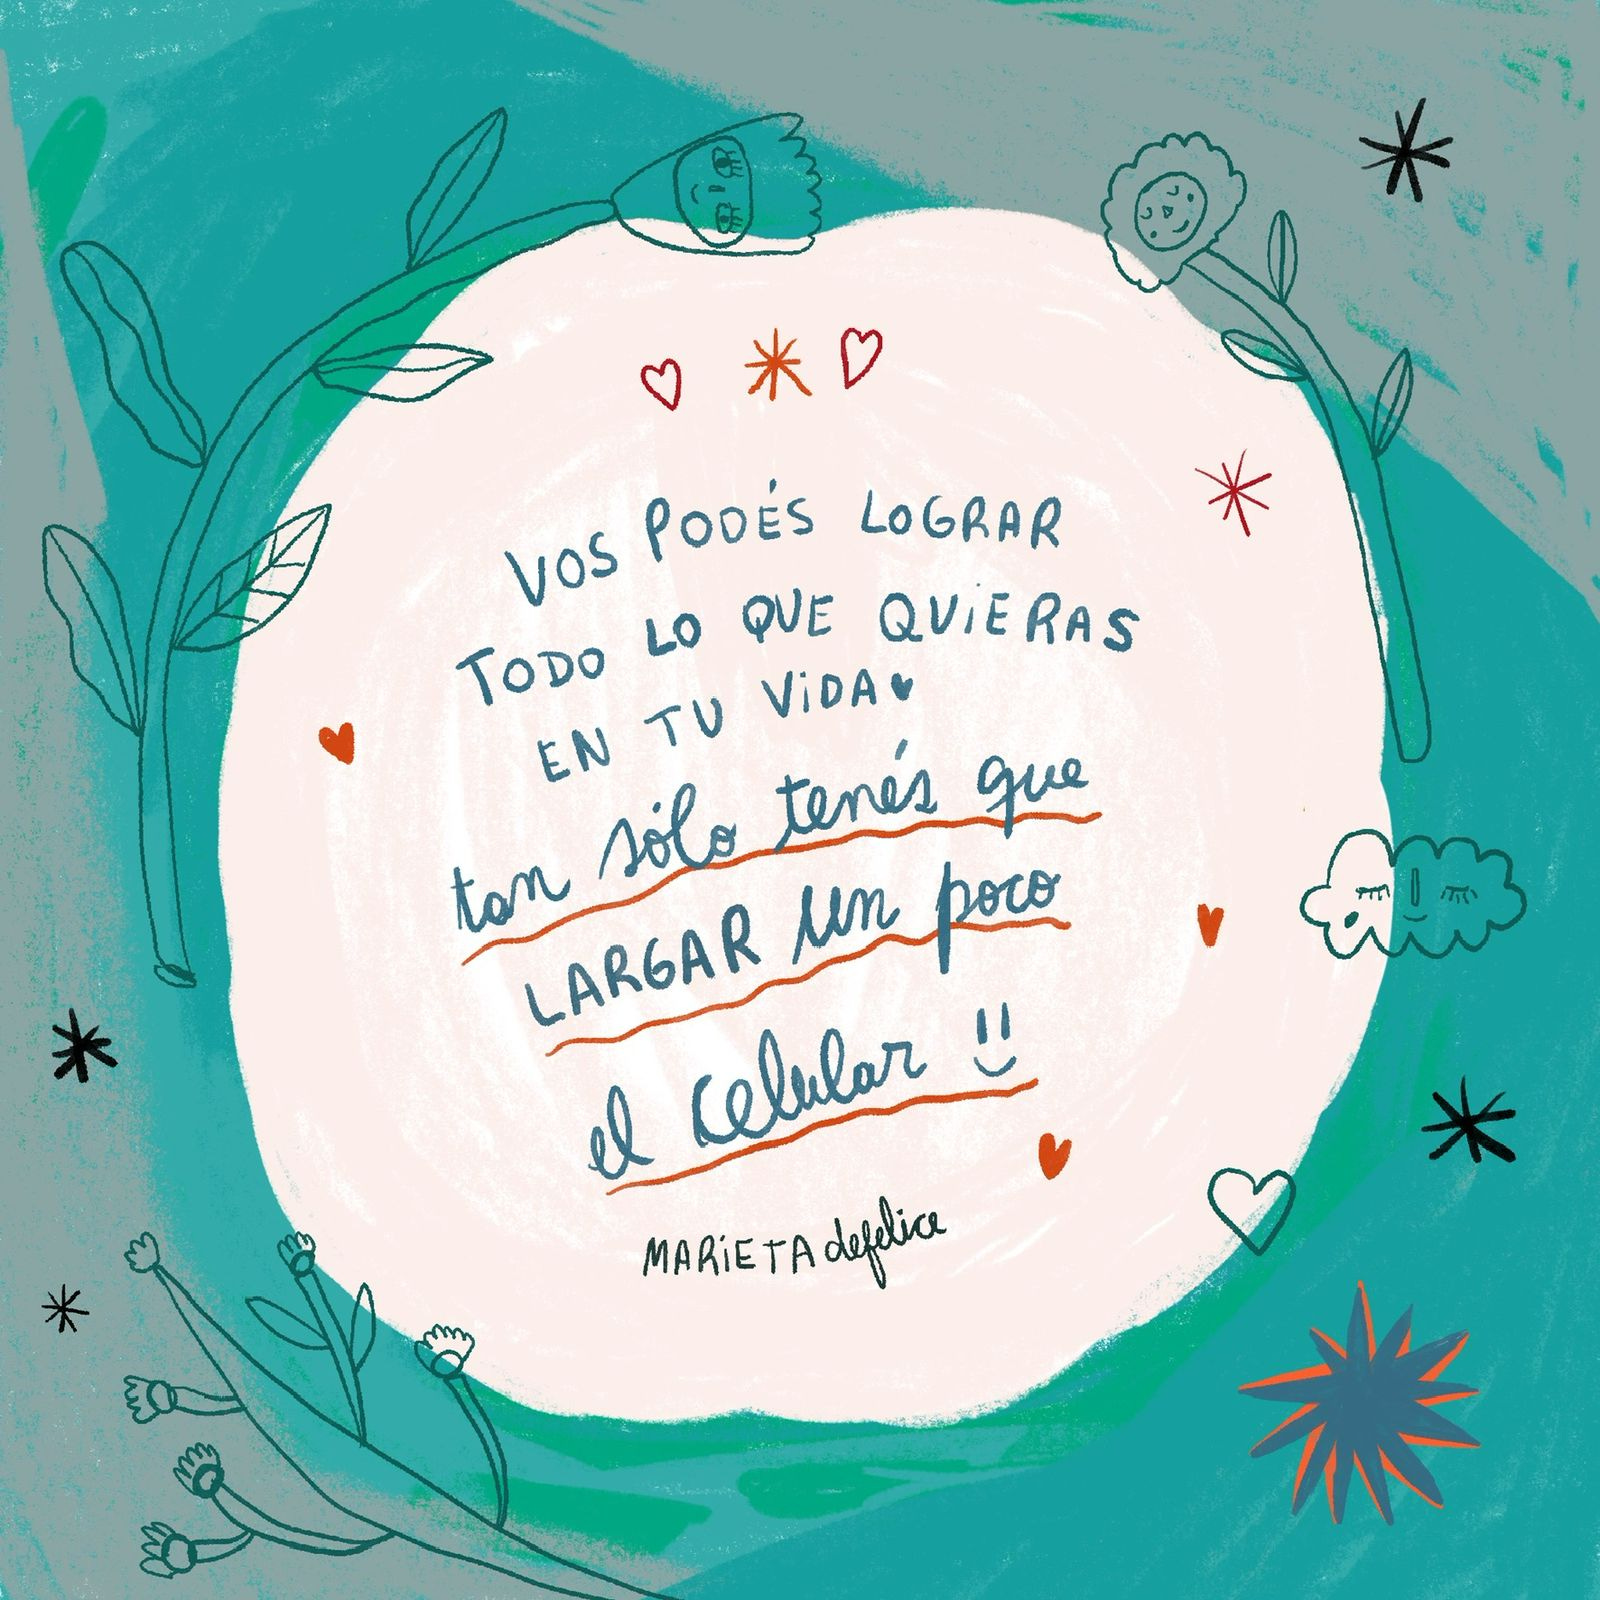 VOS PODÉS LOGRAR
TODO LO QUE QUiERAS
EN TU ViDA
tan sólo tenés que
LARGAR un poco
el celular
MARiETA defelice